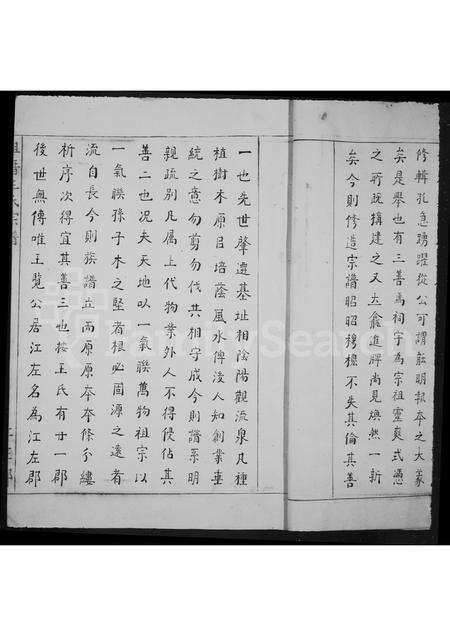 修輯孔急踴躍從公可謂能明報本之大義
矣是舉也有三善焉祠宇為宗祖靈爽式憑
之所既構建之又立龕進牌尚見煥然一新
矣今則修造宗譜昭昭穆穆不失其倫其善
一也先世肇遷基址相陰陽觀流泉凡種
植樹木原日培蔭風水傳後人知創業垂
統之意勿剪勿伐共相守成今則譜系明
親疏別凡屬上代物業外人不得侵佔其
善二也况夫天地以一氣聯萬物祖宗以
一氣聯孫子木之堅者根必固源之遠者
流自長今則族譜立而原原本本條分縷
析序次得宜其善三也按王氏有廿一郡
後世無傳唯王覽公居江左名為江左郡
王氏宗譜
FamilySearch